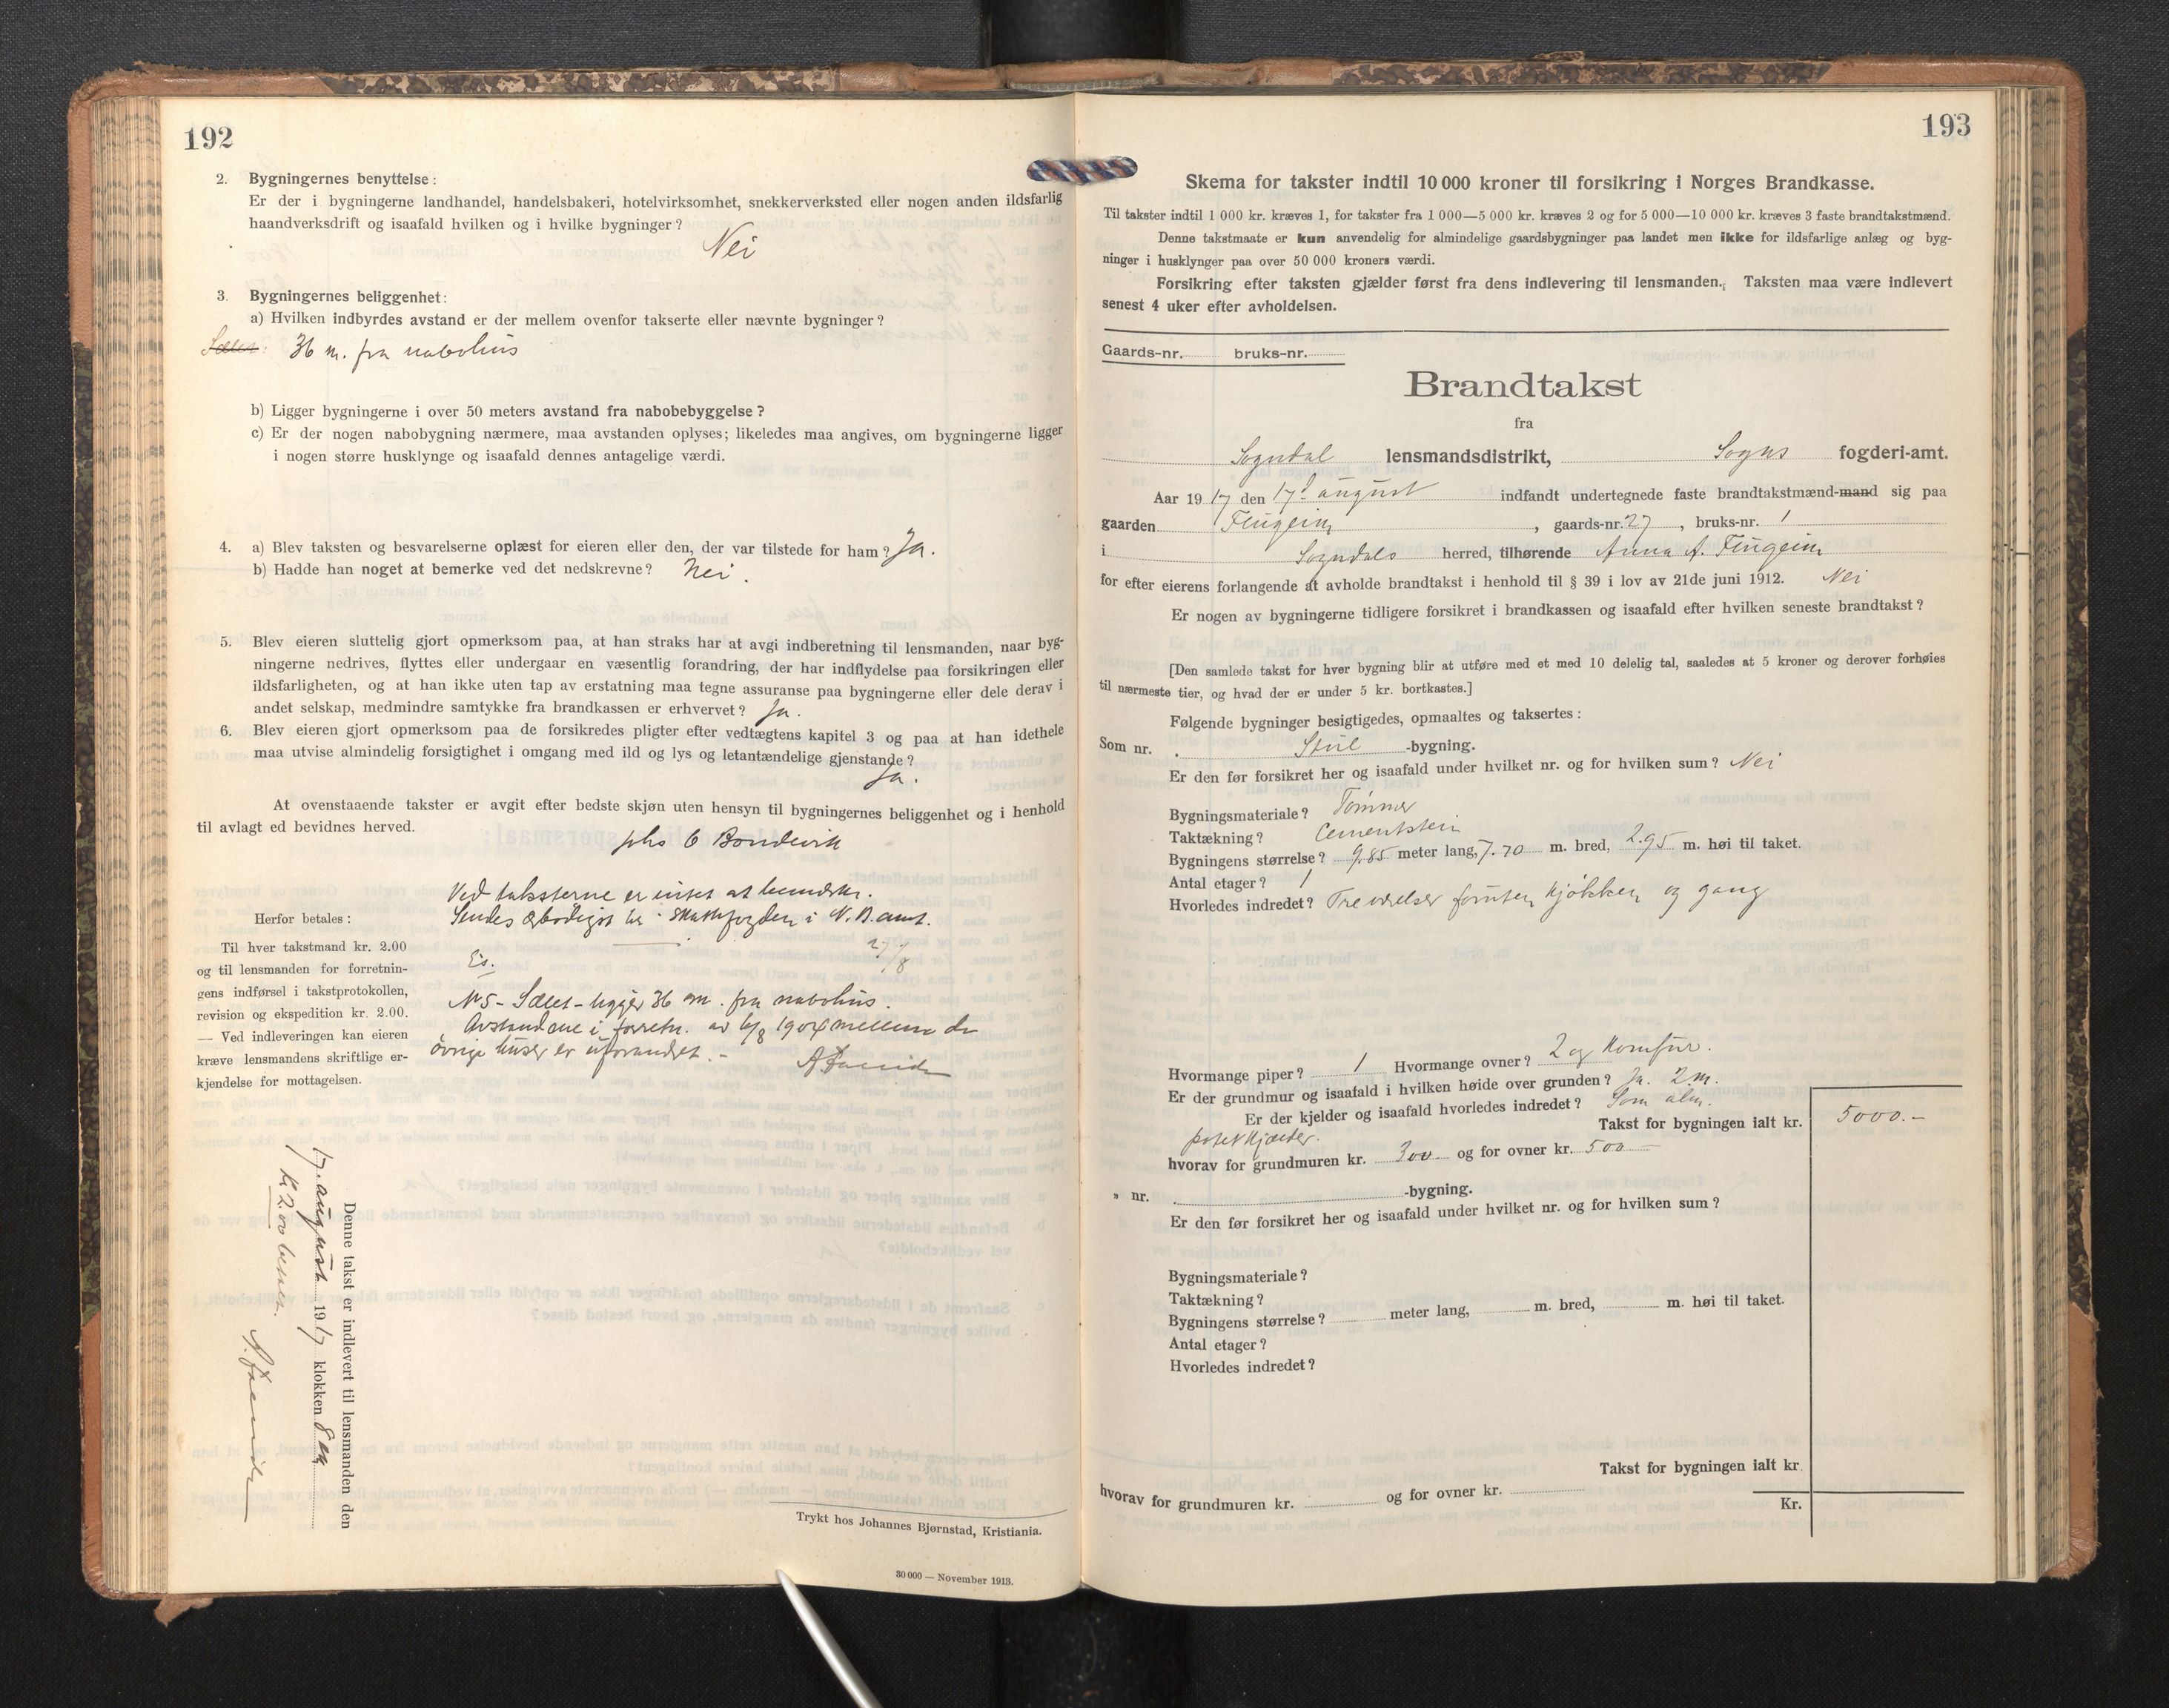 192
2. Bygningernes benyttelse:
Er der i bygningerne landhandel, handelsbakeri, hotelvirksomhet, snekkerverksted eller nogen anden ildsfarlig
haandverksdrift og isaafald hvilken og i hvilke bygninger?
Nei
3. Bygningernes beliggenhet:
a) Hvilken indbyrdes avstand er der mellem ovenfor takserte eller nævnte bygninger?
36 m. fra nabohus
b) Ligger bygningerne i over 50 meters avstand fra nabobebyggelse?
c) Er der nogen nabobygning nærmere, maa avstanden oplyses; likeledes maa angives, om bygningerne ligger
i nogen større husklynge og isaafald dennes antagelige værdi.
4. a) Blev taksten og besvarelserne oplæst for eieren eller den, der var tilstede for ham? Ja.
b) Hadde han noget at bemerke ved det nedskrevne? Nei.
5. Blev eieren sluttelig gjort opmerksom paa, at han straks har at avgi indberetning til lensmanden, naar byg-
ningerne nedrives, flyttes eller undergaar en væsentlig forandring, der har indflydelse paa forsikringen eller
ildsfarligheten, og at han ikke uten tap av erstatning maa tegne assuranse paa bygningerne eller dele derav i
andet selskap, medmindre samtykke fra brandkassen er erhvervet? Ja.
6. Blev eieren gjort opmerksom paa de forsikredes pligter efter vedtægtens kapitel 3 og paa at han idethele
maa utvise almindelig forsigtighet i omgang med ild og lys og letantændelige gjenstande?
Ja.
At ovenstaaende takster er avgit efter bedste skjøn uten hensyn til bygningernes beliggenhet og i henhold
til avlagt ed bevidnes herved.
Johs O Bondevik
Ved taksterne er intet at bemerke.
Sendes ærbødigst hr. skattefogden i N. B. amt.
27/8
Es.
N 5 - Sælet - ligger 36 m. fra nabohus.
Avstandene i forretn. av 6/8 1904 mellem de
øvrige huser er uforandret. -
Herfor betales:
Til hver takstmand kr. 2.00
og til lensmanden for forretnin-
gens indførsel i takstprotokollen,
revision og ekspedition kr. 2.00.
— Ved indleveringen kan eieren
kræve lensmandens skriftlige er-
kjendelse for mottagelsen.
Denne takst er indlevert til lensmanden den
17. august 1917 klokken 8 em
Kr 2.00
Trykt hos Johannes Bjørnstad, Kristiania.
30 000 — November 1913.
193
Skema for takster indtil 10 000 kroner til forsikring i Norges Brandkasse.
Til takster indtil 1 000 kr. kræves 1, for takster fra 1 000—5 000 kr. kræves 2 og for 5 000—10 000 kr. kræves 3 faste brandtakstmænd.
Denne takstmaate er kun anvendelig for almindelige gaardsbygninger paa landet men ikke for ildsfarlige anlæg og byg-
ninger i husklynger paa over 50 000 kroners værdi.
Forsikring efter taksten gjælder først fra dens indlevering til lensmanden. Taksten maa være indlevert
senest 4 uker efter avholdelsen.
Gaards-nr. bruks-nr.
Brandtakst
fra
Sogndal lensmandsdistrikt, Sogns fogderi-amt.
Aar 1917 den 17d august indfandt undertegnede faste brandtakstmænd-mand sig paa
gaarden Flugeim, gaards-nr. 27, bruks-nr. 1
i Sogndals herred, tilhørende Anna A. Flugeim
for efter eierens forlangende at avholde brandtakst i henhold til § 39 i lov av 21de juni 1912. Nei
Er nogen av bygningerne tidligere forsikret i brandkassen og isaafald efter hvilken seneste brandtakst?
[Den samlede takst for hver bygning blir at utføre med et med 10 delelig tal, saaledes at 5 kroner og derover forhøies
til nærmeste tier, og hvad der er under 5 kr. bortkastes.]
Følgende bygninger besigtigedes, opmaaltes og taksertes:
Som nr. Stue-bygning.
Er den før forsikret her og isaafald under hvilket nr. og for hvilken sum? Nei
Bygningsmateriale? Tømmer
Taktækning? Cementstein
Bygningens størrelse? 9.85 meter lang, 7.70 m. bred, 2.95 m. høi til taket.
Antal etager? 1
Hvorledes indredet? Tre værelser foruten kjøkken og gang
Hvormange piper? 1 Hvormange ovner? 2 og komfur.
Er der grundmur og isaafald i hvilken høide over grunden? Ja. 2 m.
Er der kjelder og isaafald hvorledes indredet? Som alm.
potetkjælder.
Takst for bygningen ialt kr. 5000.-
hvorav for grundmuren kr. 300 og for ovner kr. 500
" nr. -bygning.
Er den før forsikret her og isaafald under hvilket nr. og for hvilken sum?
Bygningsmateriale?
Taktækning?
Bygningens størrelse? meter lang, m. bred, m. høi til taket.
Antal etager?
Hvorledes indredet?
Takst for bygningen ialt kr.
hvorav for grundmuren kr. og for ovner kr.
Kr.